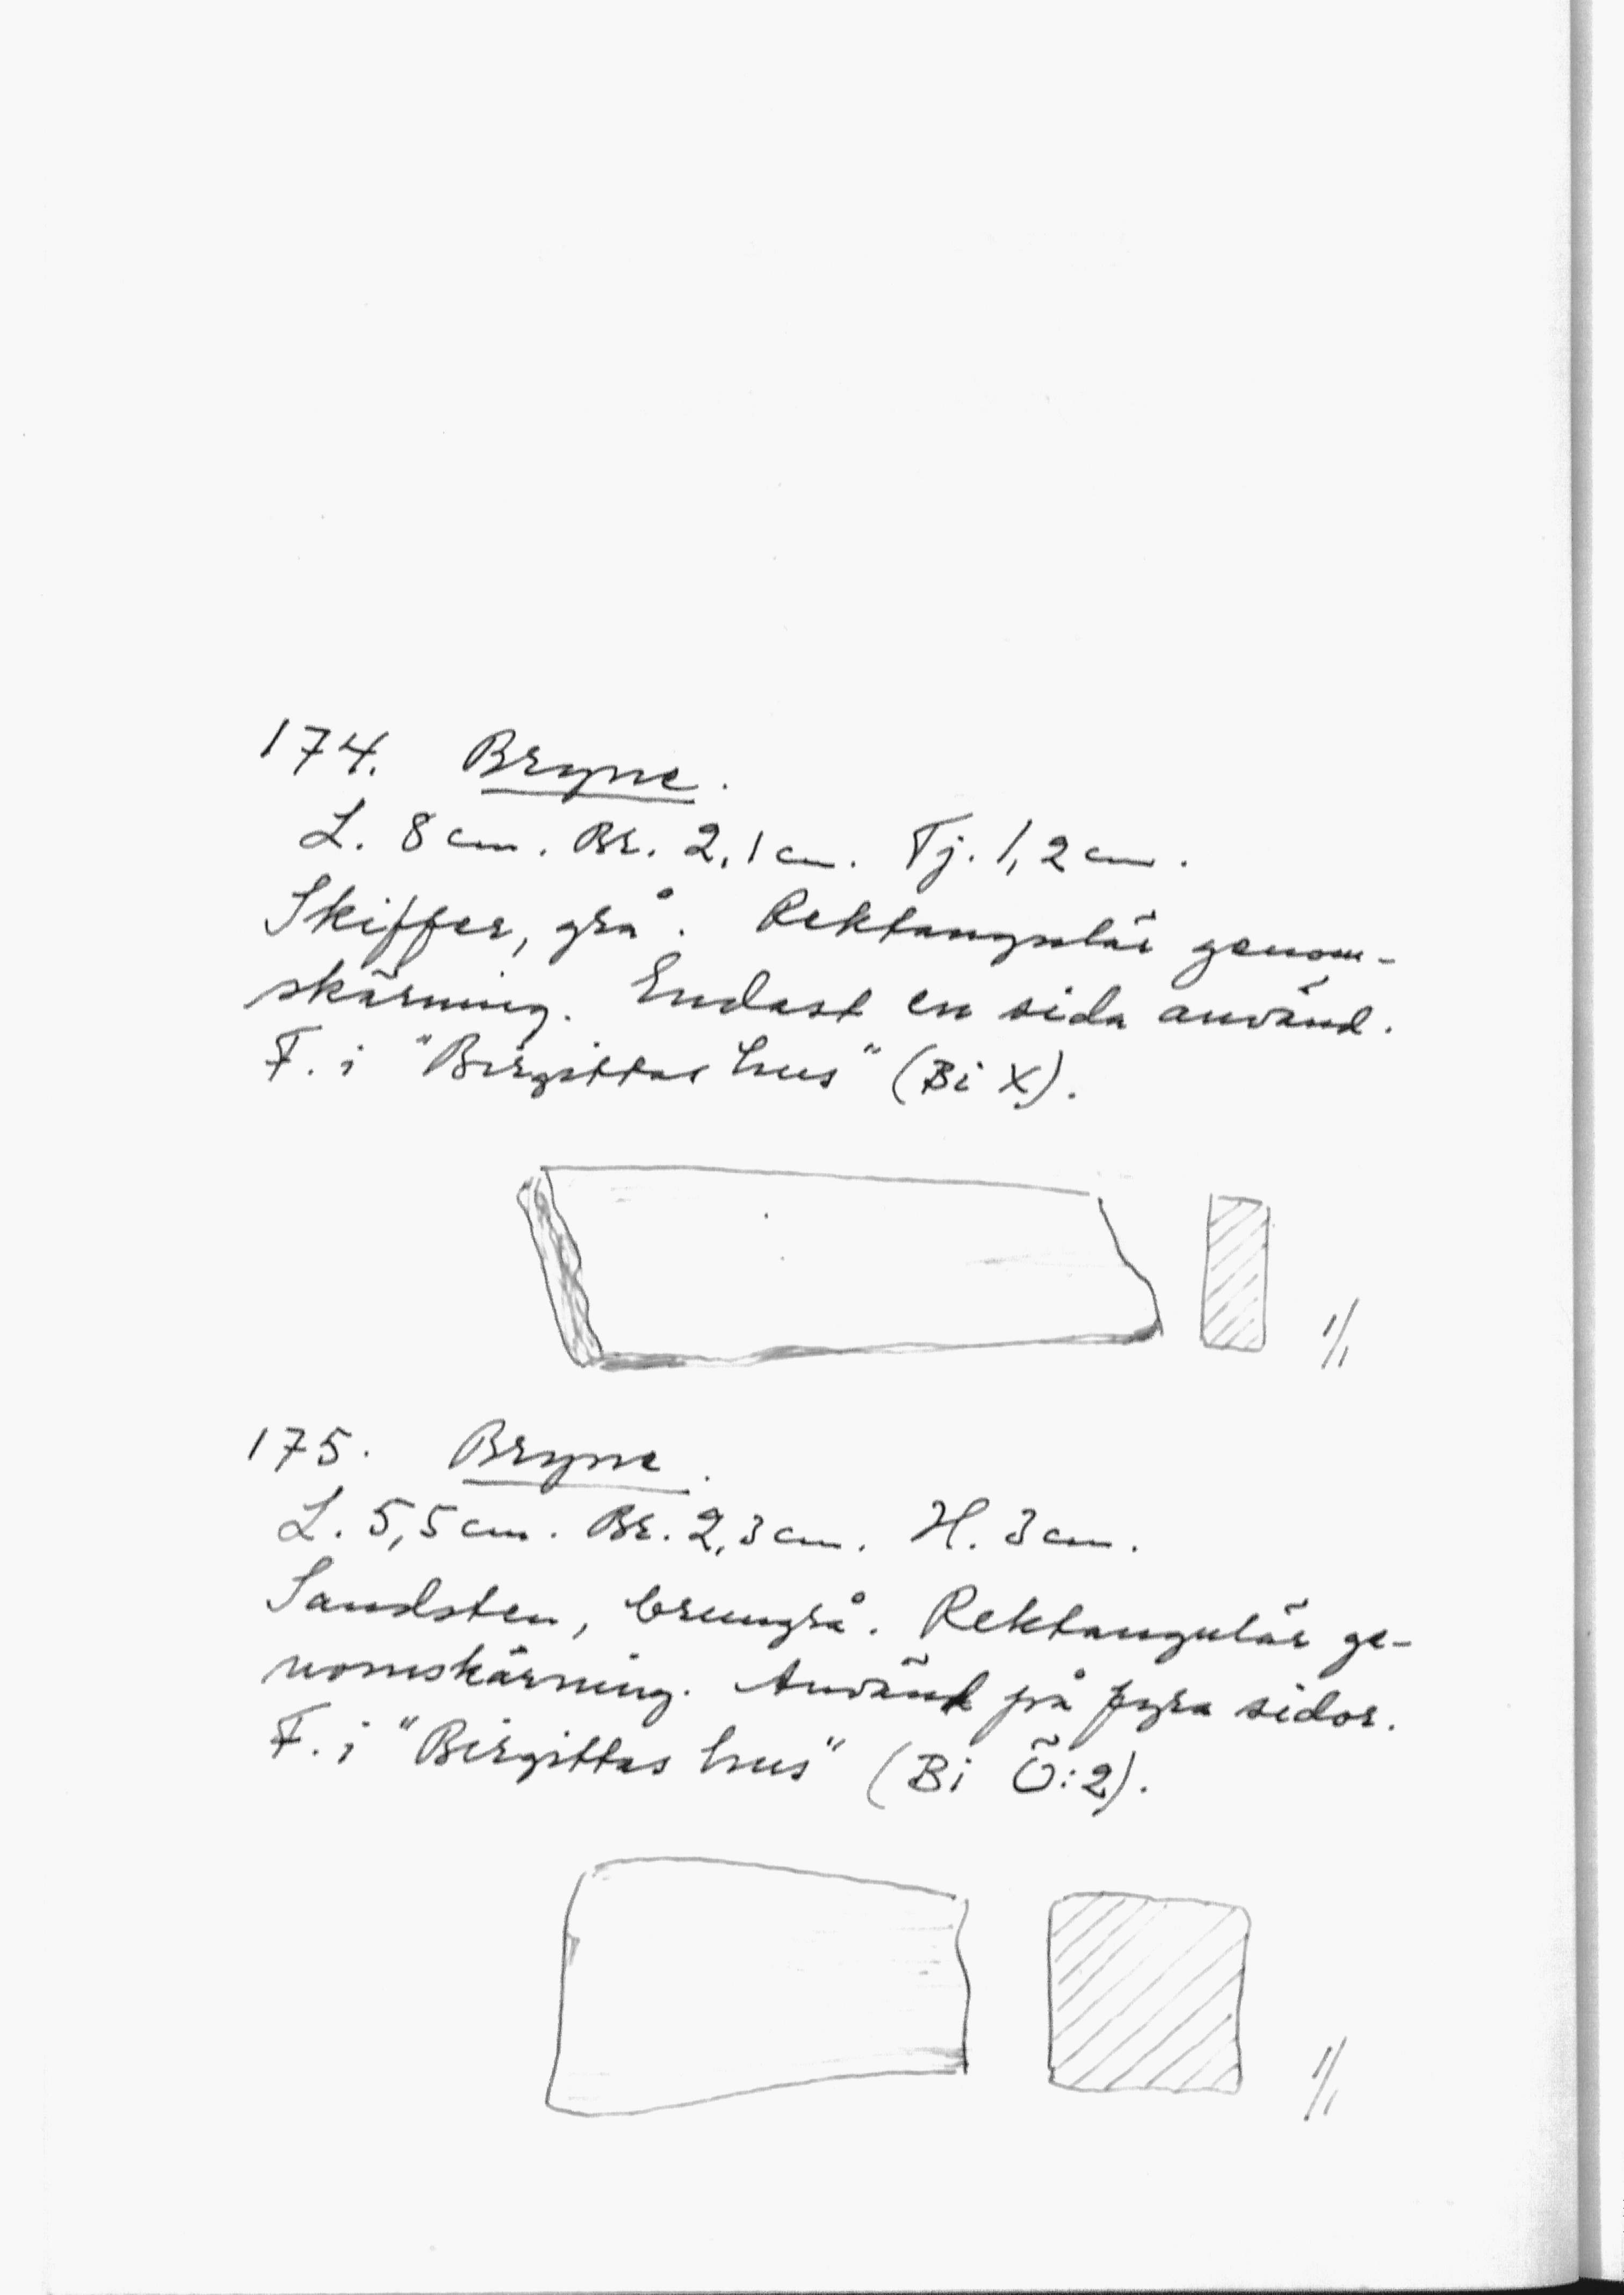 174. Bryne.
L. 8 cm. Br. 2,1 cm. Tj. 1,2 cm.
Skiffer, grå. Rektangulär genom-
skärning. Endast en sida använd.
F. i "Birgittas hus" (Bi X).
1/1
175. Bryne.
L. 5,5 cm. Br. 2,3 cm. H. 3 cm.
Sandsten, brungrå. Rektangulär ge-
nomskärning. Använd på fyra sidor.
F. i "Birgittas hus" (Bi Ö:2).
1/1